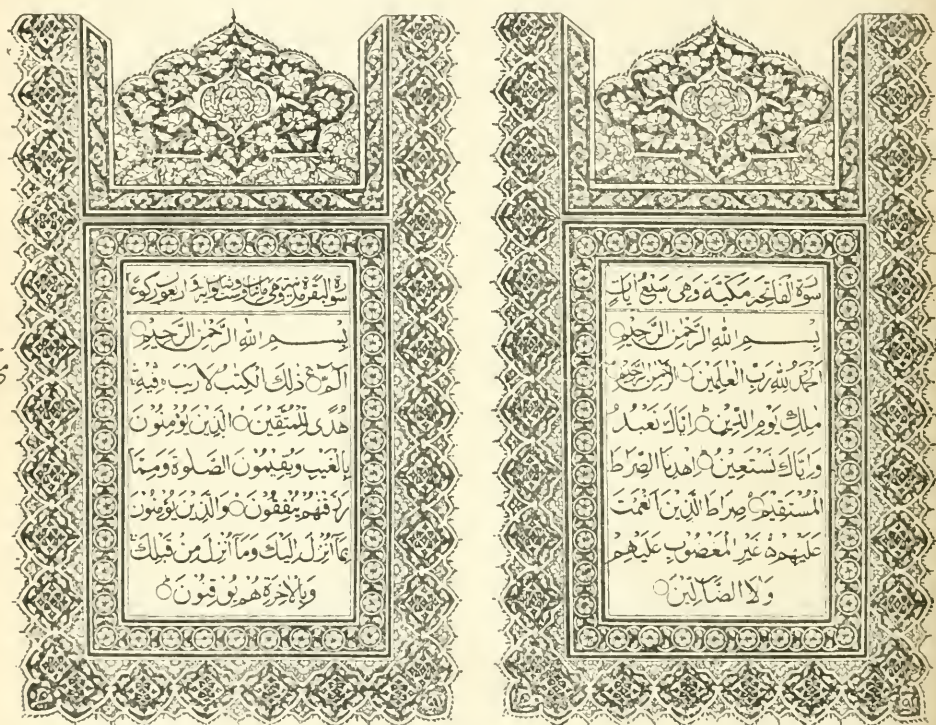 سورة الفاتحة مكية وهى سبع ايات
بِسْمِ اللهِ الرَّحْمٰنِ الرَّحِيْمِ
اَلْحَمْدُ لِلّٰهِ رَبِّ الْعٰلَمِيْنَ الرَّحْمٰنِ الرَّحِيْمِ
مٰلِكِ يَوْمِ الدِّيْنِ اِيَّاكَ نَعْبُدُ
وَاِيَّاكَ نَسْتَعِيْنُ اِهْدِنَا الصِّرَاطَ
الْمُسْتَقِيْمَ صِرَاطَ الَّذِيْنَ اَنْعَمْتَ
عَلَيْهِمْ غَيْرِ الْمَغْضُوْبِ عَلَيْهِمْ
وَلَا الضَّآلِّيْنَ
سورة البقرة مدنية وهى مائتان وست
بِسْمِ اللهِ الرَّحْمٰنِ الرَّحِيْمِ
الٓمّٓ ذٰلِكَ الْكِتٰبُ لَا رَيْبَ فِيْهِ
هُدًى لِّلْمُتَّقِيْنَ الَّذِيْنَ يُؤْمِنُوْنَ
بِالْغَيْبِ وَيُقِيْمُوْنَ الصَّلٰوةَ وَمِمَّا
رَزَقْنٰهُمْ يُنْفِقُوْنَ وَالَّذِيْنَ يُؤْمِنُوْنَ
بِمَآ اُنْزِلَ اِلَيْكَ وَمَآ اُنْزِلَ مِنْ قَبْلِكَ
وَبِالْاٰخِرَةِ هُمْ يُوْقِنُوْنَ